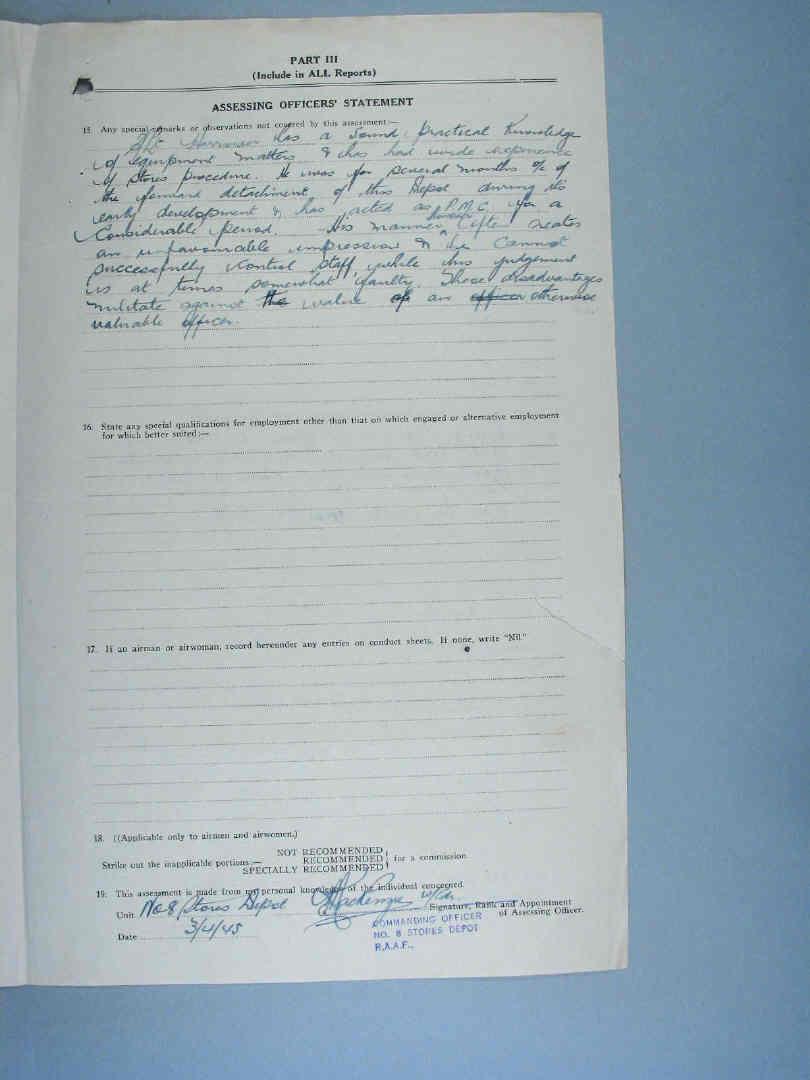 PART III
(Include in ALL Reports)
ASSESSING OFFICERS' STATEMENT
15. Any special remarks or observations not covered by this assessment:—
F/Lt Harrison has a sound practical knowledge
of equipment matters & has had wide experience
of stores procedure. He was for several months O/C of
the forward detachment of this Depot during its
early development & has acted as P.M.C. for a
considerable period. His manner however often creates
an unfavourable impression & he cannot
successfully control staff, while his judgement
is at times somewhat faulty. These disadvantages
militate against the value of an officer otherwise
valuable officer.
16. State any special qualifications for employment other than that on which engaged or alternative employment
for which better suited:—
17. If an airman or airwoman, record hereunder any entries on conduct sheets. If none, write "Nil."
18. (Applicable only to airmen and airwomen.)
Strike out the inapplicable portions:—
NOT RECOMMENDED
RECOMMENDED
SPECIALLY RECOMMENDED
for a commission
19. This assessment is made from my personal knowledge of the individual concerned.
Unit No 8 Stores Depot Mackenzie W/Cdr. Signature, Rank and Appointment
of Assessing Officer.
Date 3/4/45
COMMANDING OFFICER
NO. 8 STORES DEPOT
R.A.A.F.